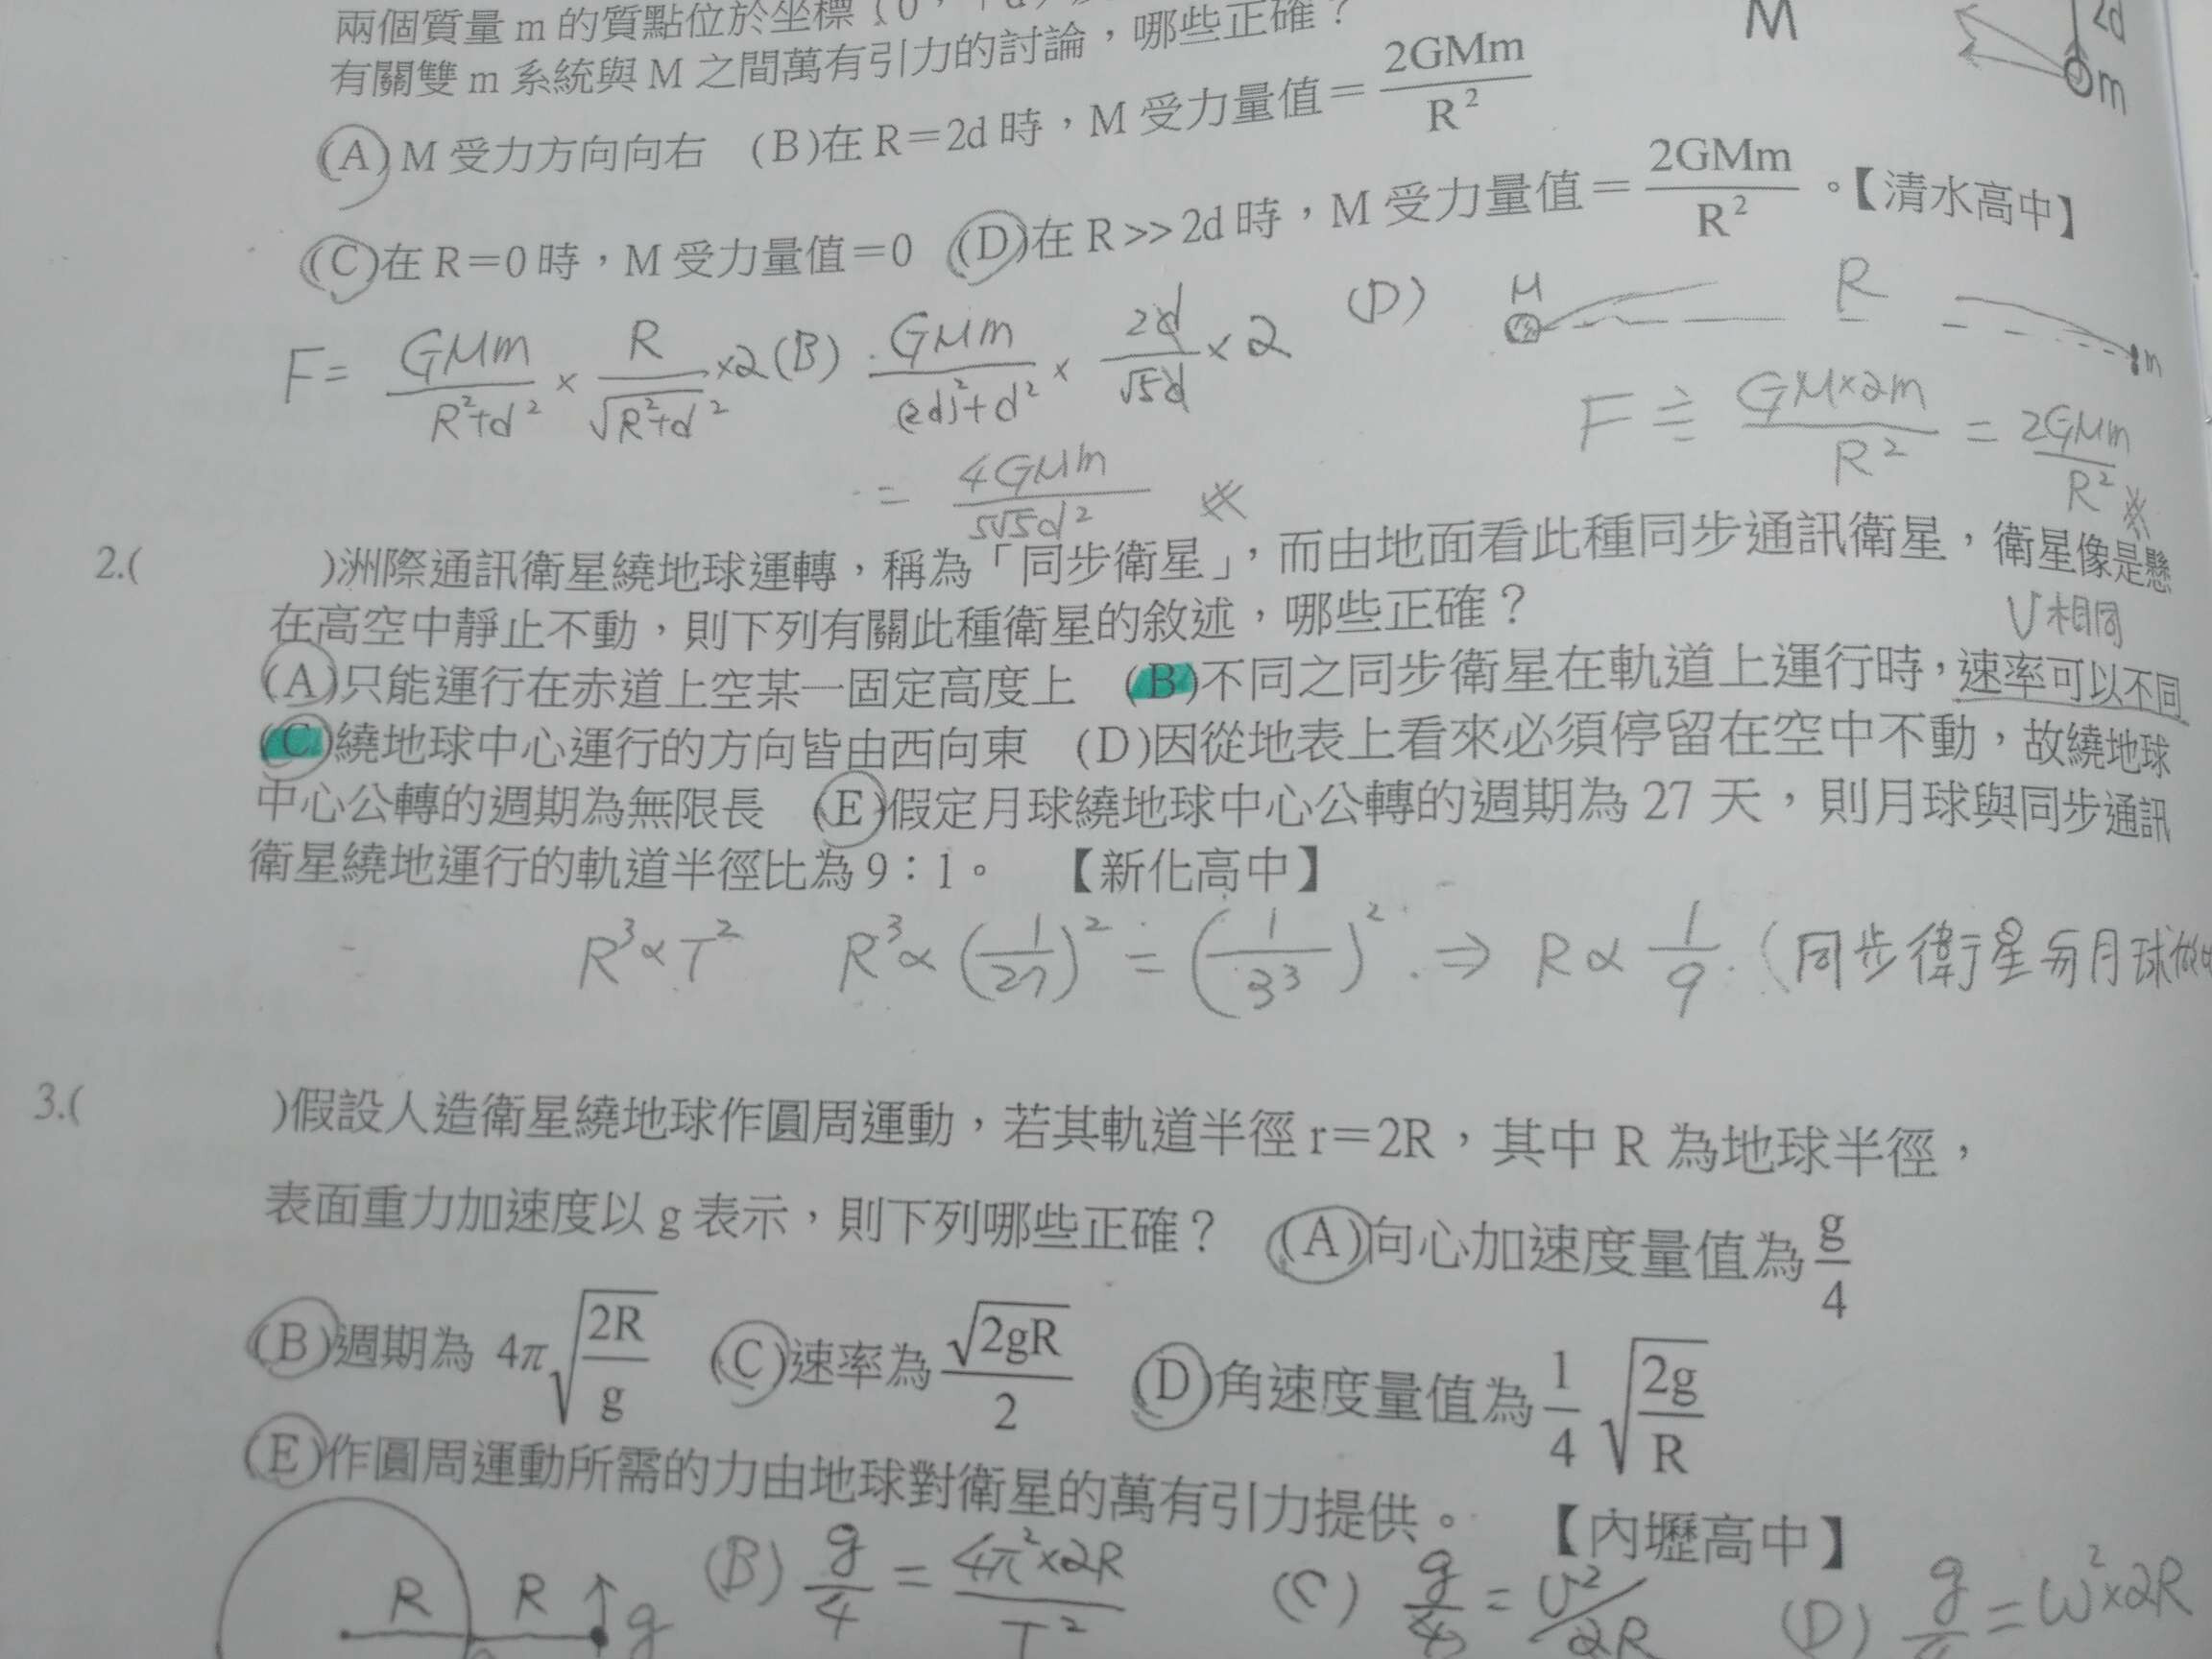 兩個質量 m 的質點位於坐標 (0,
有關雙 m 系統與 M 之間萬有引力的討論，哪些正確？
M
2d
m
(A) M 受力方向向右 (B)在 R＝2d 時，M 受力量值＝2GMm/R²
(C)在 R＝0 時，M 受力量值＝0 (D)在 R>>2d 時，M 受力量值＝2GMm/R²。【清水高中】
F= GMm/(R²+d²) × R/√(R²+d²) ×2 (B) GMm/((2d)²+d²) × 2d/√5d ×2 (D) M R m
= 4GMm/(5√5d²)
F≒ GM×2m/R² = 2GMm/R²
2.( )洲際通訊衛星繞地球運轉，稱為「同步衛星」，而由地面看此種同步通訊衛星，衛星像是懸
在高空中靜止不動，則下列有關此種衛星的敘述，哪些正確？
v相同
(A)只能運行在赤道上空某一固定高度上 (B)不同之同步衛星在軌道上運行時，速率可以不同
(C)繞地球中心運行的方向皆由西向東 (D)因從地表上看來必須停留在空中不動，故繞地球
中心公轉的週期為無限長 (E)假定月球繞地球中心公轉的週期為 27 天，則月球與同步通訊
衛星繞地運行的軌道半徑比為 9：1。 【新化高中】
R³∝T² R³∝(1/27)² = (1/3³)² ⇒ R∝1/9 (同步衛星與月球做
3.( )假設人造衛星繞地球作圓周運動，若其軌道半徑 r＝2R，其中 R 為地球半徑，
表面重力加速度以 g 表示，則下列哪些正確？ (A)向心加速度量值為 g/4
(B)週期為 4π√(2R/g) (C)速率為 √(2gR)/2 (D)角速度量值為 1/4 √(2g/R)
(E)作圓周運動所需的力由地球對衛星的萬有引力提供。 【內壢高中】
R R g (B) g/4 = 4π²×2R/T² (C) g/4 = v²/2R (D) g/4 = ω²×2R